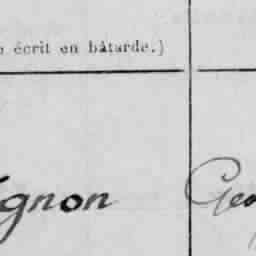 écrit en bâtarde.)
gnon
Geo